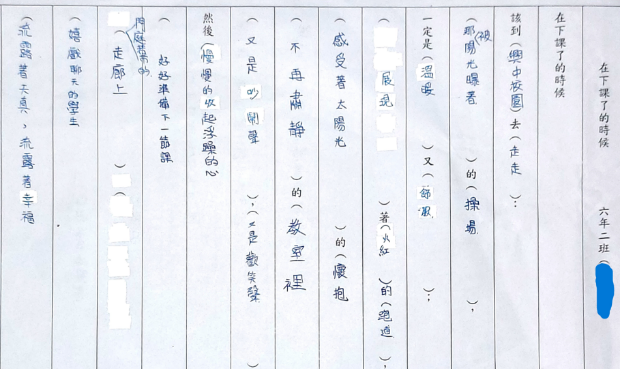 在下課了的時候　六年二班(
在下課了的時候
該到(興中校園)去(走走)：
(那被陽光曝著)的(操場)，
一定是(溫暖)又(舒服)：
(展現)著(火紅)的(跑道)，
(感受著太陽光)的(懷抱
(不再肅靜)的(教室裡
(又是吵鬧聲)，(又是歡笑聲)
然後(慢慢的收起浮躁的心
(好好準備下一節課
(門庭若市的走廊上)(
(嬉戲聊天的學生
(流露著天真，流露著幸福